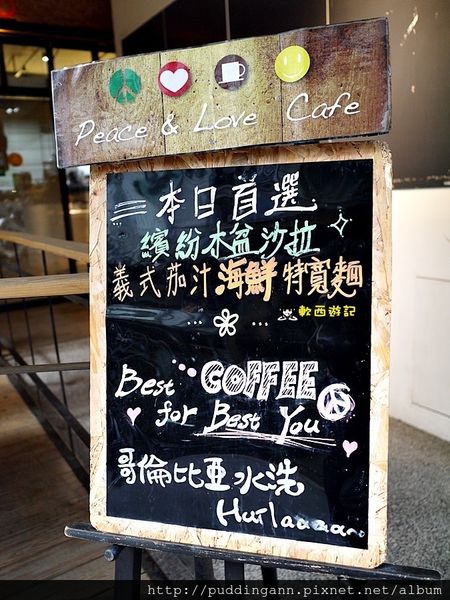 Peace & Love Cafe
本日首選
繽紛木盆沙拉
義式茄汁海鮮特寬麵
軟西遊記
Best COFFEE
for Best You
哥倫比亞水洗
Huilaaaaa~
http://puddingann.pixnet.net/album